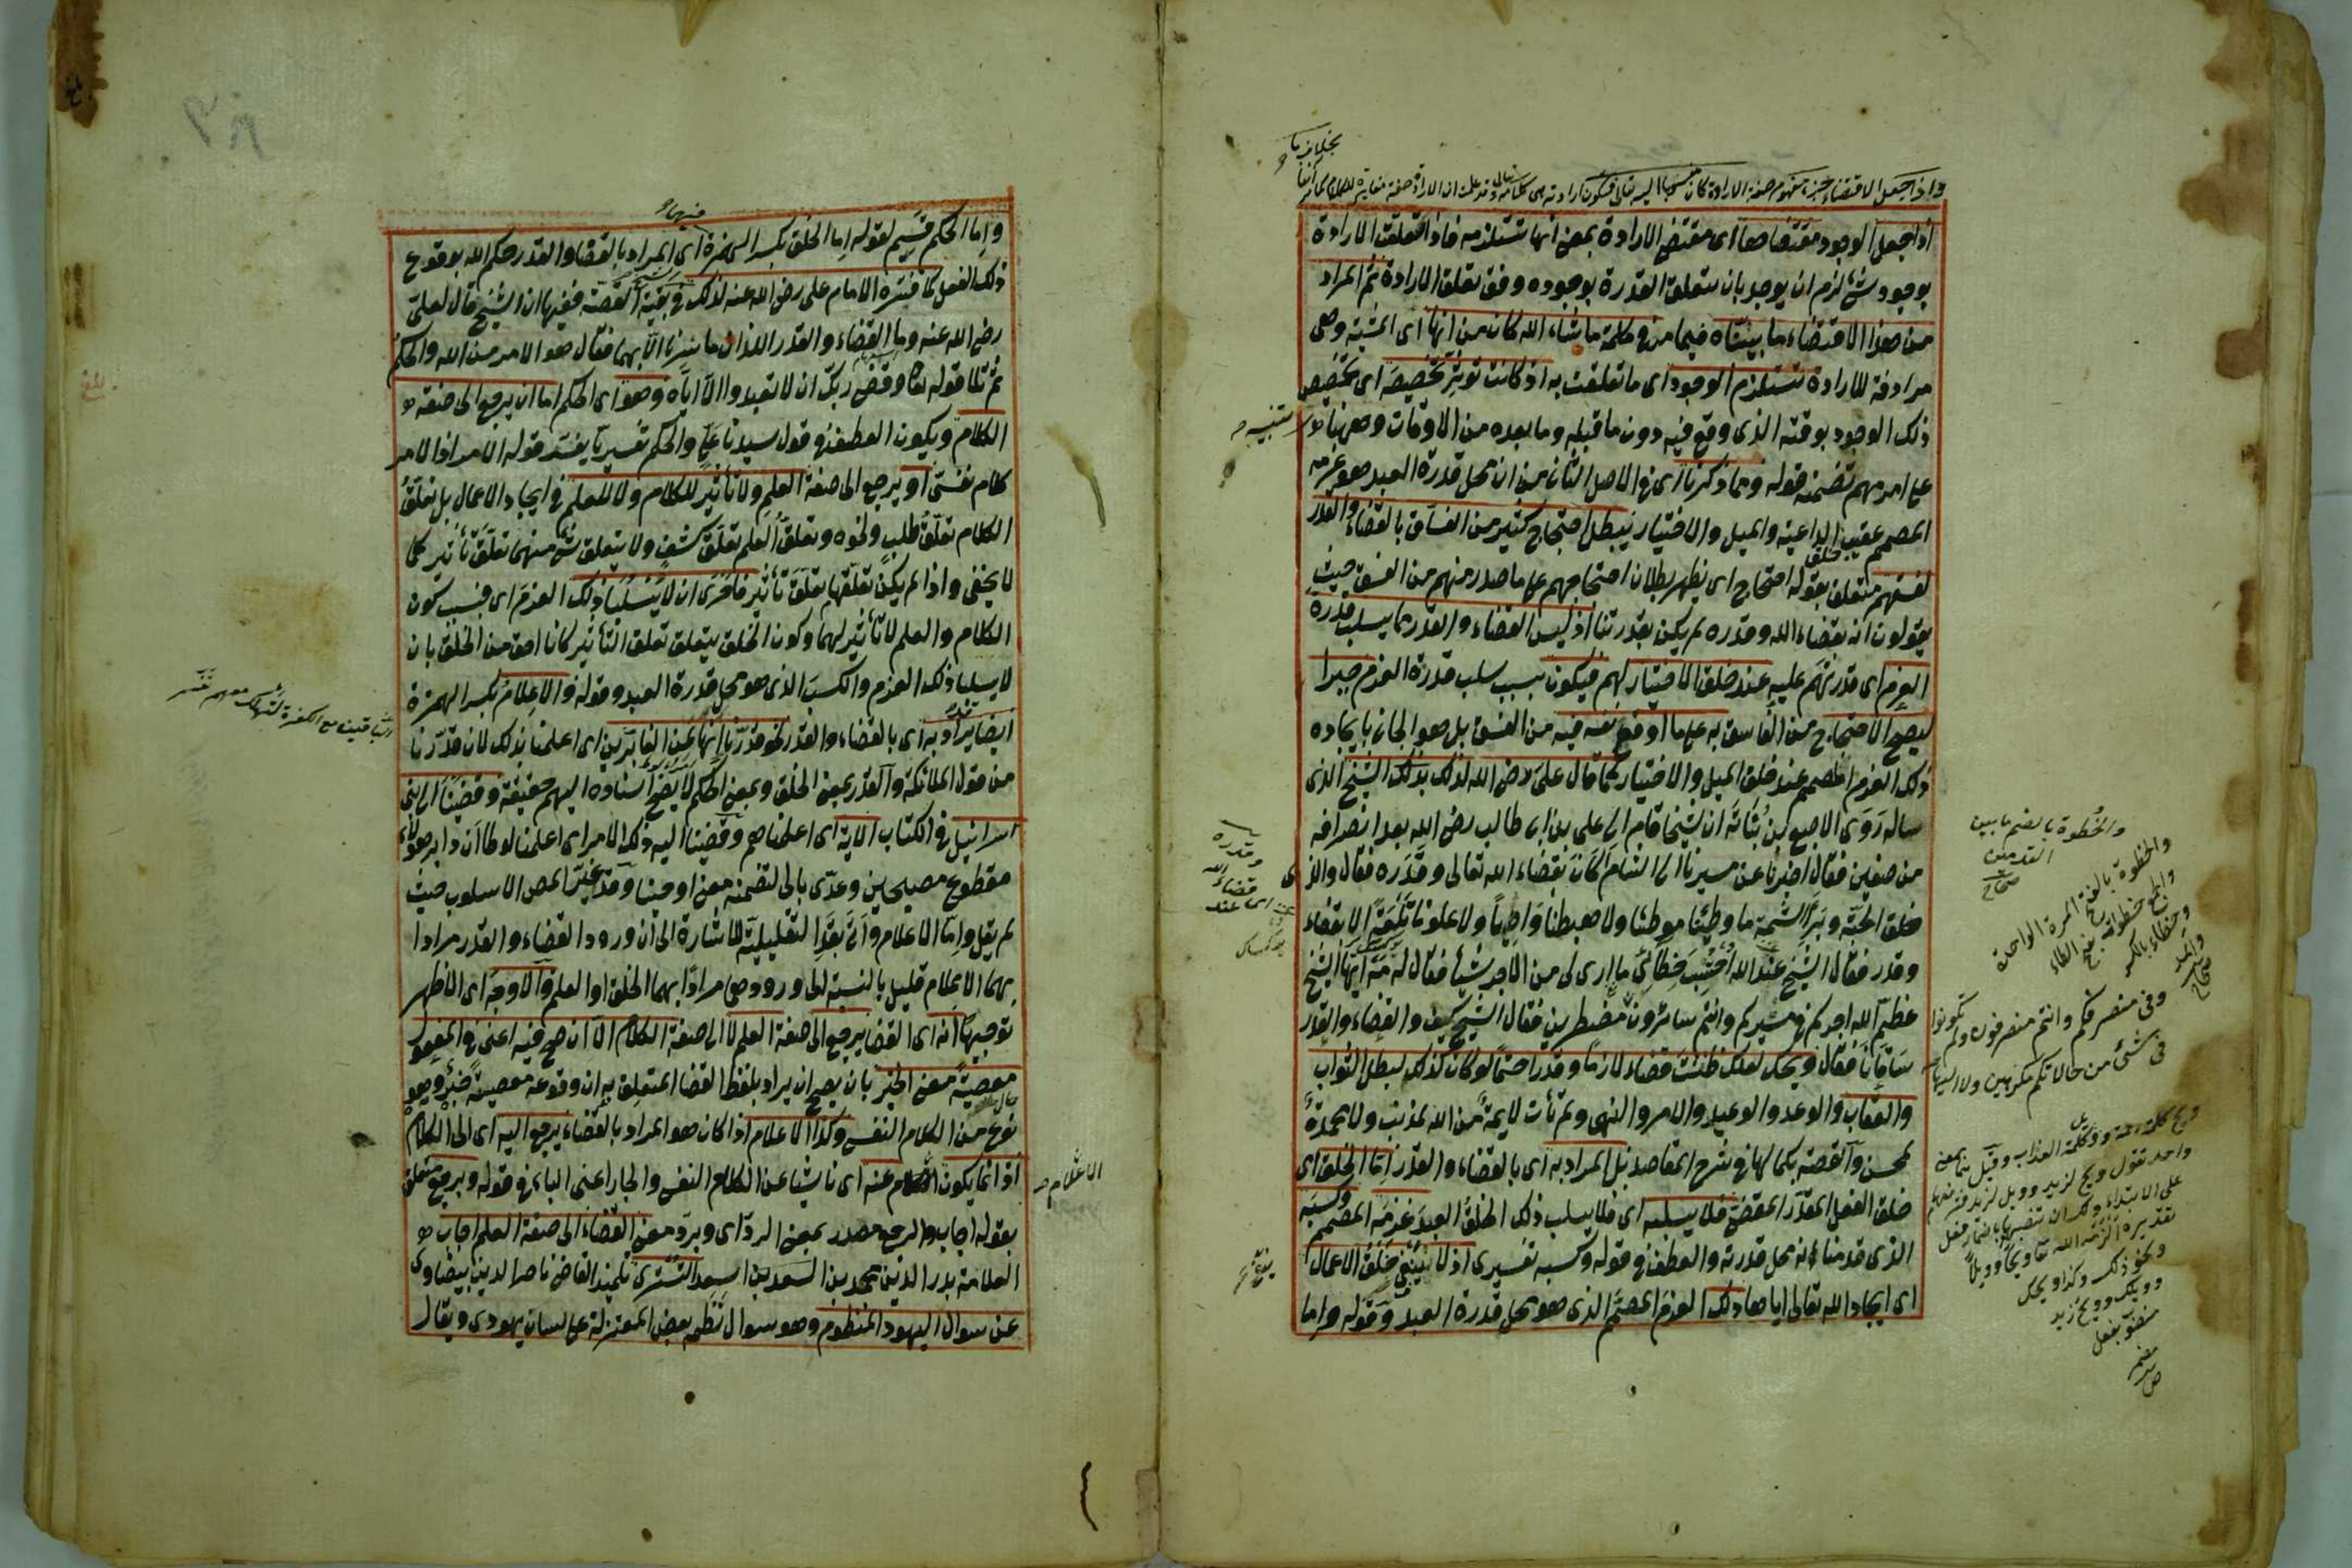 واذا جعل الاقتضاء جزء مفهوم صفة الارادة كان منسوبا اليه تعالى فتكون ارادته هى كلامه وقد علمت ان الارادة صفة مغايرة للكلام كما مر آنفا
اذا جعل الوجود مقتضاها اى مقتضى الارادة بمعنى انها تستلزمه فاذا تعلقت الارادة
بوجود شئ لزم ان يوجد بان تتعلق القدرة بوجوده وفق تعلق الارادة ثم المراد
من هذا الاقتضاء ما بيناه فيما مر فى كلمة ما شاء الله كان من انها اى المشية وهى
مرادفة للارادة تستلزم الوجود اى ما تعلقت به اذ كانت تؤثر تخصيصه اى تخصيص
ذلك الوجود بوقته الذى وقع فيه دون ما قبله وما بعده من الاوقات وههنا
تنبيه
على امر مهم تضمنه قوله ومما ذكرنا اى فى الاصل الثانى من ان محل قدرة العبد هو عزمه
المصمم عقيب خلق الداعية والميل والاختيار يبطل احتجاج كثير من الفساق بالقضاء والقدر
لفسقهم متعلق بقوله احتجاج اى يظهر بطلان احتجاجهم على ما صدر منهم من الفسق حيث
يقولون انه بقضاء الله وقدره لم يكن بقدرتنا اذ ليس القضاء والقدر مما يسلب قدرة
العزم اى قدرتهم عليه عند خلق الاختيار لهم فيكون بسبب سلب قدرة العزم جبرا
ليصح الاحتجاج من الفاسق به على ما اوقع نفسه فيه من الفسق بل هو الجانى بايجاده
ذلك العزم المصمم عند خلق الميل والاختيار كما قال على رضى الله لذلك بذلك الشيخ الذى
ساله روى الاصبغ بن نباتة ان شيخا قام الى على بن ابى طالب رضى الله بعد انصرافه
من صفين فقال اخبرنا عن مسيرنا الى الشام اكان بقضاء الله تعالى وقدره فقال والذى
خلق الحبة وبرأ النسمة ما وطئنا موطئا ولا هبطنا واديا ولا علونا تلعة الا بقضاء
وقدر فقال الشيخ عند الله احتسب خطائى ما ارى لى من الاجر شيأ فقال له مه ايها الشيخ
عظم الله اجركم فى مسيركم وانتم سائرون مضطرين فقال الشيخ كيف والقضاء والقدر
ساقانا فقال ويحك لعلك ظننت قضاء لازما وقدرا حتما لو كان كذلك لبطل الثواب
والعقاب والوعد والوعيد والامر والنهى ولم تأت لايمة من الله لمذنب ولا محمدة
لمحسن والقصة بكمالها فى شرح المقاصد بل المراد به اى بالقضاء والقدر اما الخلق اى
خلق الفعل المقدر المقضى فلا يسلبه اى فلا يسلب ذلك الخلق العبد عزمه المصمم وكسبه
الذى قدمنا انه محل قدرته والعطف فى قوله وكسبه تفسيرى اذ لا ينبغى خلق الاعمال
اى ايجاد الله تعالى اياها ذلك العزم المصمم الذى هو محل قدرة العبد وقوله واما
والخطوة بالضم ما بين
القدمين
صحاح
والخطوة بالفتح المرة الواحدة
وفى منصرفكم وانتم منصرفون ولم تكونوا
فى شئ من حالاتكم مكرهين ولا اليها
ويح كلمة رحمة وويل كلمة العذاب وقيل بمعنى
واحد تقول ويح لزيد وويل لزيد فترفعهما
على الابتداء ولك ان تنصبهما باضمار فعل
تقديره الزمه الله تعالى ويحا وويلا
ونحو ذلك وكذا ويحك
وويلك وويح زيد
منصوب بفعل
مضمر
واما الحكم قسيم لقوله اما الخلق بكسر الهمزة فيهما اى المراد بالقضاء والقدر حكم الله بوقوع
ذلك الفعل كما فسره الامام على رضى الله عنه لذلك الشيخ فى بقية القصة ففيها ان الشيخ قال لعلى
رضى الله عنه وما القضاء والقدر اللذان ما سرنا الا بهما فقال هو الامر من الله والحكم
ثم تلا قوله تعالى وقضى ربك ان لا تعبدوا الا اياه وهو اى الحكم اما ان يرجع الى صفة
الكلام ويكون العطف فى قول سيدنا على والحكم تفسيريا يفسر قوله الامر اذ الامر
كلام نفسى او يرجع الى صفة العلم ولا تأثير للكلام ولا للعلم فى ايجاد الاعمال بل تعلق
الكلام تعلق طلب ونحوه وتعلق العلم تعلق كشف ولا يتعلق شئ منهما تعلق تأثير كما
لا يخفى واذا لم يكن تعلقهما تعلق تأثير فاحرى ان لا يسلبا ذلك العزم اى فبسبب كون
الكلام والعلم لا تأثير لهما وكون الخلق يتعلق تعلق التأثير كانا احق من الخلق بان
لا يسلبا ذلك العزم والكسب الذى هو محل قدرة العبد وقوله والاعلام بكسر الهمزة
ايضا قد يراد به اى بالقضاء والقدر نحو قدرنا انها لمن الغابرين اى اعلمنا بذلك لان قدرنا
من قول الملائكة والقدر بمعنى الخلق وبمعنى الحكم لا يصح اسناده اليهم حقيقة وقضينا الى بنى
اسرائيل فى الكتاب الاية اى اعلمناهم وقضينا اليه ذلك الامر اى اعلمنا لوطا ان دابر هؤلاء
مقطوع مصبحين وعدى بالى لتضمنه معنى اوحينا وقد غير المص الاسلوب حيث
لم يقل واما الاعلام واتى بقد التقليلية للاشارة الى ان ورود القضاء والقدر مرادا
بهما الاعلام قليل بالنسبة الى ورودهما مرادا بهما الخلق او العلم والاوجه اى الاظهر
توجيها انه اى القضا يرجع الى صفة العلم لا الى صفة الكلام الا ان صح فيه اعنى فى المفعول
معصية معنى الخبر بان يصح ان يراد بلفظ القضا المتعلق به ان وقوعه معصية خبر وهو
نوع من الكلام النفسى وكذا الاعلام اذا كان هو المراد بالقضاء يرجع اليه اى الى الكلام
اذ انما يكون الاعلام عنه اى ناشيا عن الكلام النفسى والجار اعنى الباء فى قوله وبرجع متعلق
بقوله اجاب والرجع مصدر بمعنى الرد اى وبرد معنى القضاء الى صفة العلم اجاب
العلامة بدر الدين محمد بن اسعد التسترى تلميذ القاضى ناصر الدين بيضاوى
عن سوال اليهود المنظوم وهو سوال نظمه بعض المعتزلة على لسان يهودى ويقال
الاعلام